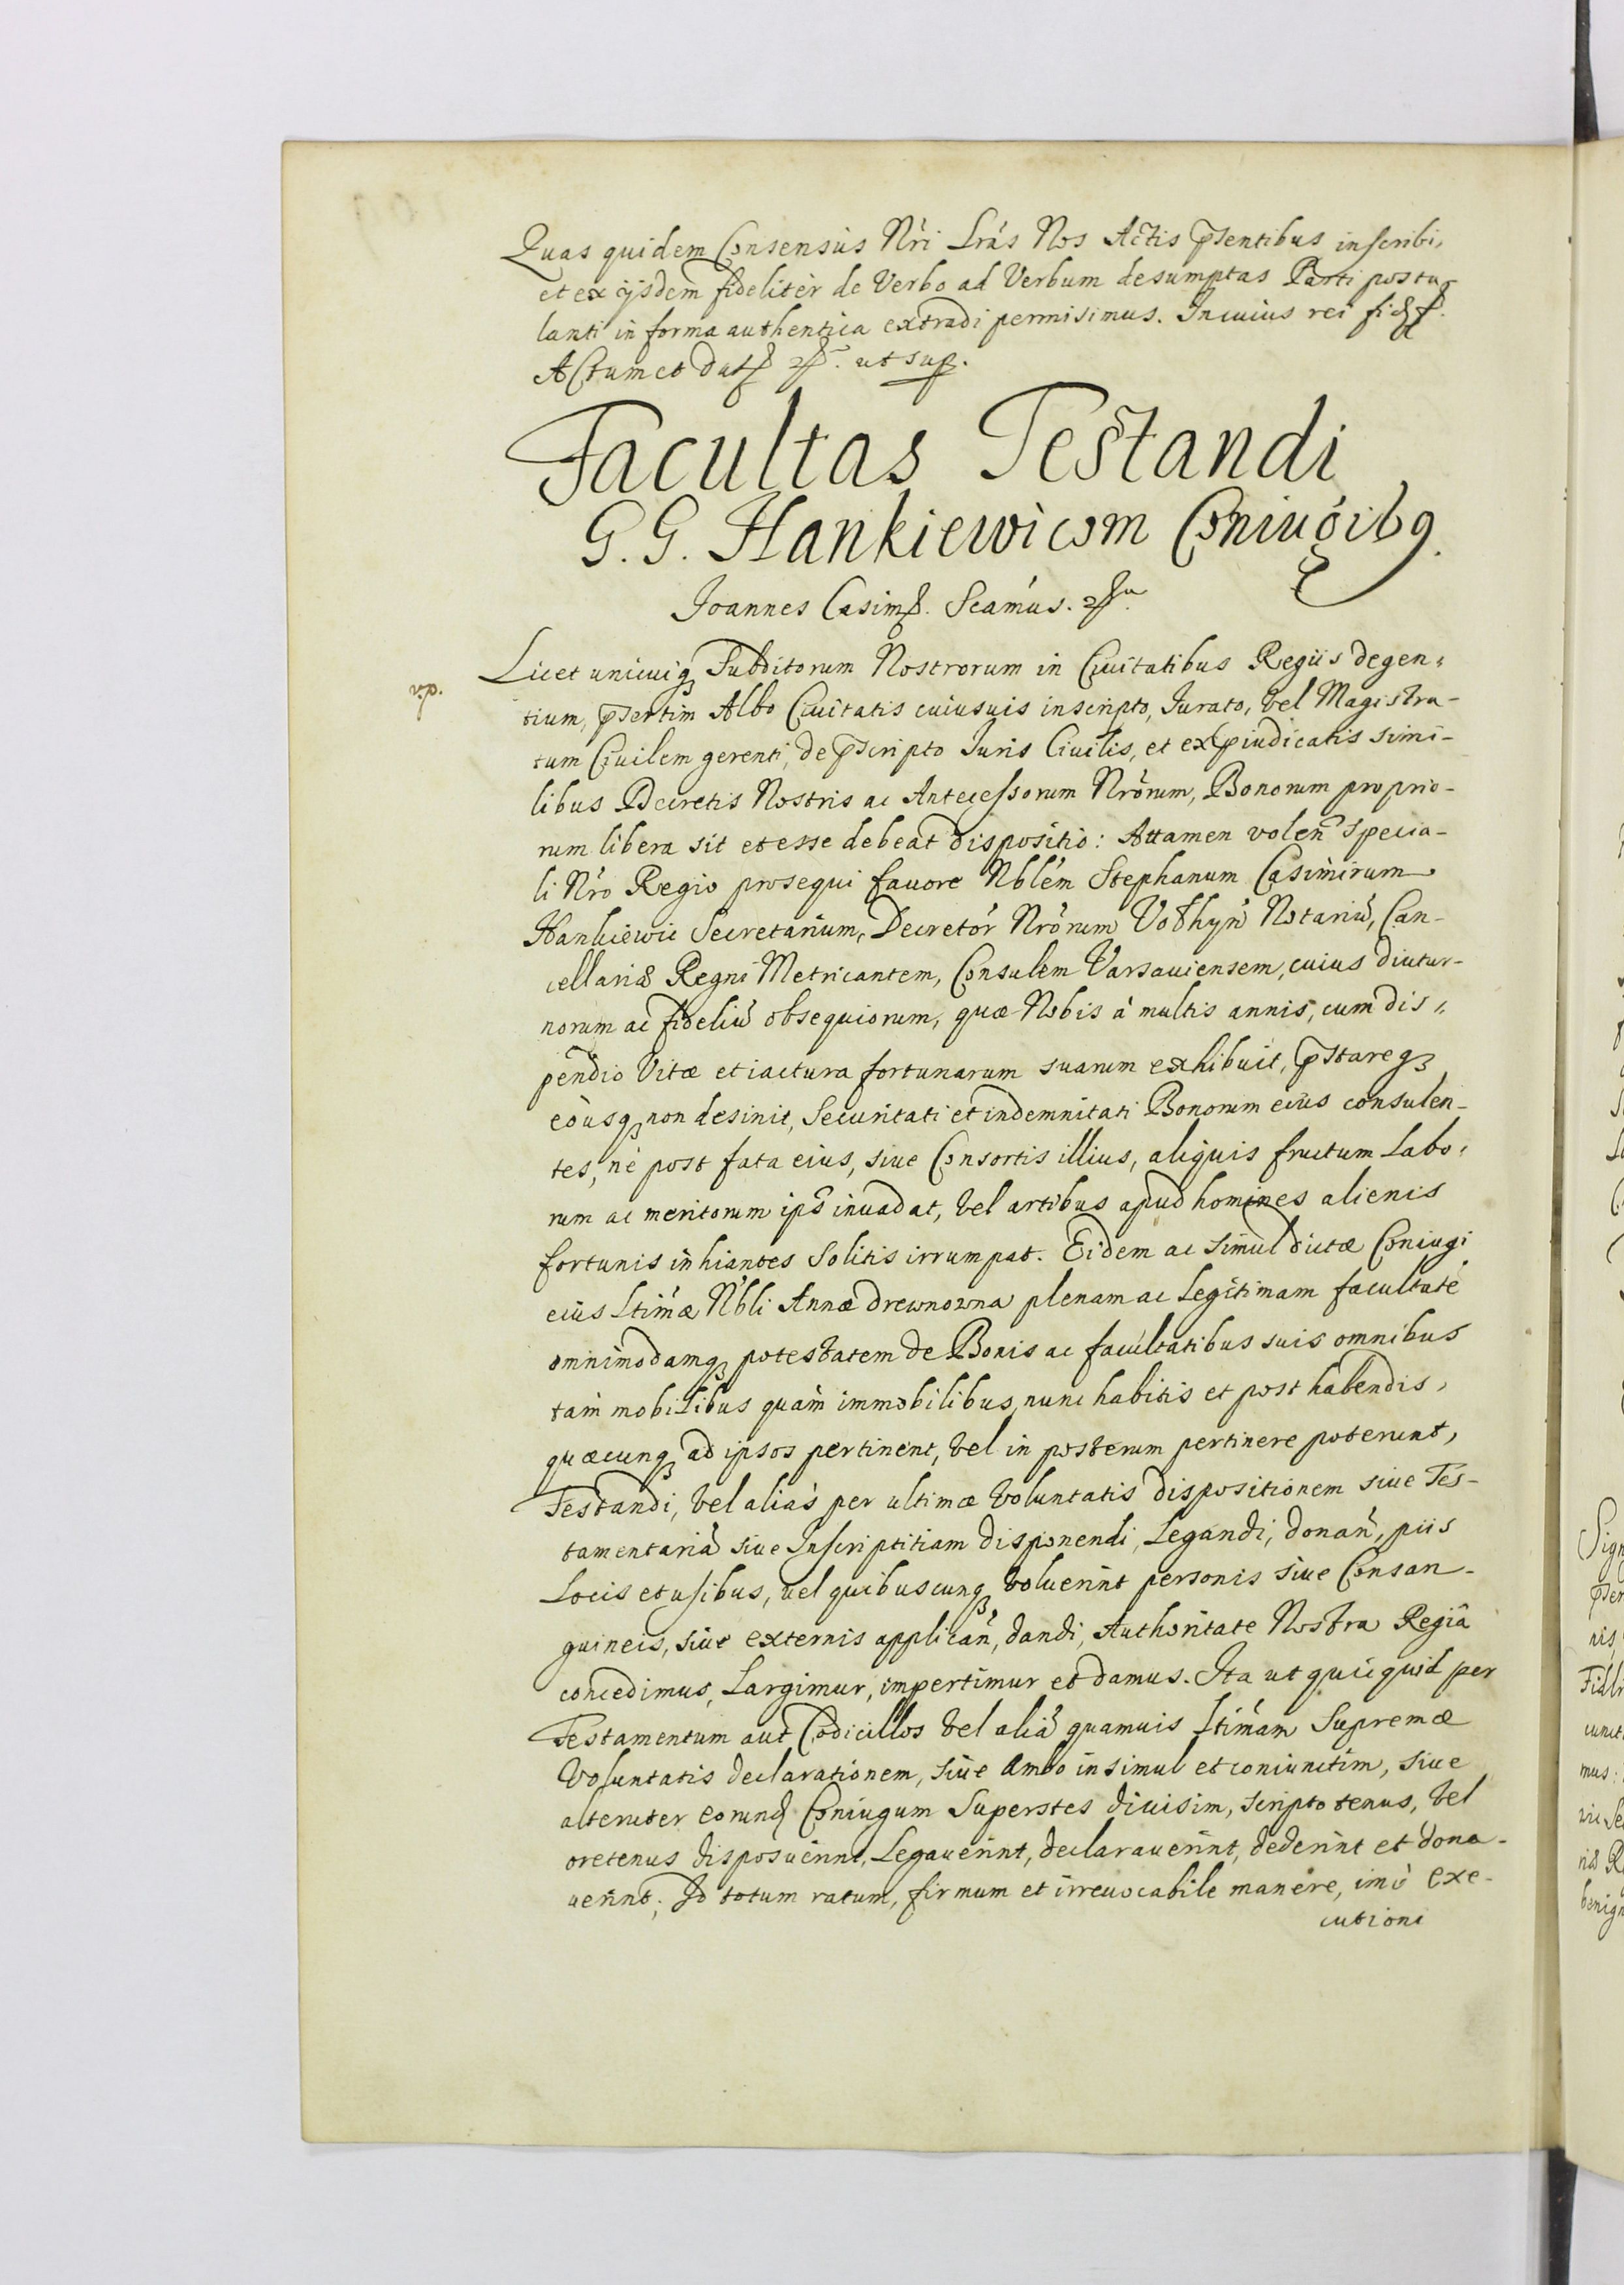 Quas quidem Consensus Nri Lrás Nos Actis pñtibus inscribi,
et ex ijsdem fidelitèr de Verbo ad Verbum desumptas Parti postu-
lanti in forma authentica extradi permisimus. In cuius rei fid.
Actum et Dat ut sup.
Facultas Testandi
G. G. Hankiewicom Coniugib9.
Joannes Casim. Scamus.
Licet unicuiq3 Subditorum Nostrorum in Ciuitatibus Regiis degen-
tium, psertim Albo Ciuitatis cuiusuis inscripto, Iurato, vel Magistra-
tum Ciuilem gerenti, de pscripto Iuris Ciuilis, et ex piudicatis simi-
libus Decretis Nostris ac Antecessorum Nrorum, Bonorum proprio-
rum libera sit et esse debeat dispositio: Attamen volen specia-
li Nro Regio prosequi fauore Nblem Stephanum Casimirum
Hankiewic Secretarium, Decretor Nrorum Volhyn Notariu, Can-
cellariæ Regni Metricantem, Consulem Varsauiensem, cuius diutur-
norum ac fideliu obsequiorum, quæ Nobis à multis annis, cum dis-
pendio Vitæ et iactura fortunarum suarum exhibuit, pstareq3
eòusq3 non desinit, Securitati et indemnitati Bonorum eius consulen-
tes, nè post fata eius, siue Consortis illius, aliquis fructum Labo-
rum ac meritorum ips inuadat, vel artibus apud homines alienis
fortunis inhiantes Solitis irrumpat. Eidem ac simul dictæ Coniugi
eius Ltimæ Nbli Annæ drewnowna plenam ac Legitimam facultate
omnimodamq3 potestatem de Bonis ac facultatibus suis omnibus
tàm mobilibus quàm immobilibus, nunc habitis et post habendis,
quæcunq3 ad ipsos pertinent, vel in posterum pertinere poterunt,
Testandi, vel aliàs per ultimæ Voluntatis dispositionem siue Tes-
tamentaria siue Inscriptitiam disponendi, Legandi, donan, piis
Locis et usibus, uel quibuscunq3 voluerint personis siue Consan-
guineis, siue externis applican, dandi, Authoritate Nostra Regiâ
concedimus, Largimur, impertimur et damus. Ita ut quicquid per
Testamentum aut Codicillos vel alia quamuis Ltimam Supremæ
Voluntatis declarationem, siue Ambo insimul et coniunctim, siue
alteruter eorund Coniugum Superstes diuisim, scripto tenus, vel
oretenus disposuerint, Legauerint, declarauerint, dederint et dona-
uerint; Id totum ratum, firmum et irreuocabile manere, imò exe-
cutioni